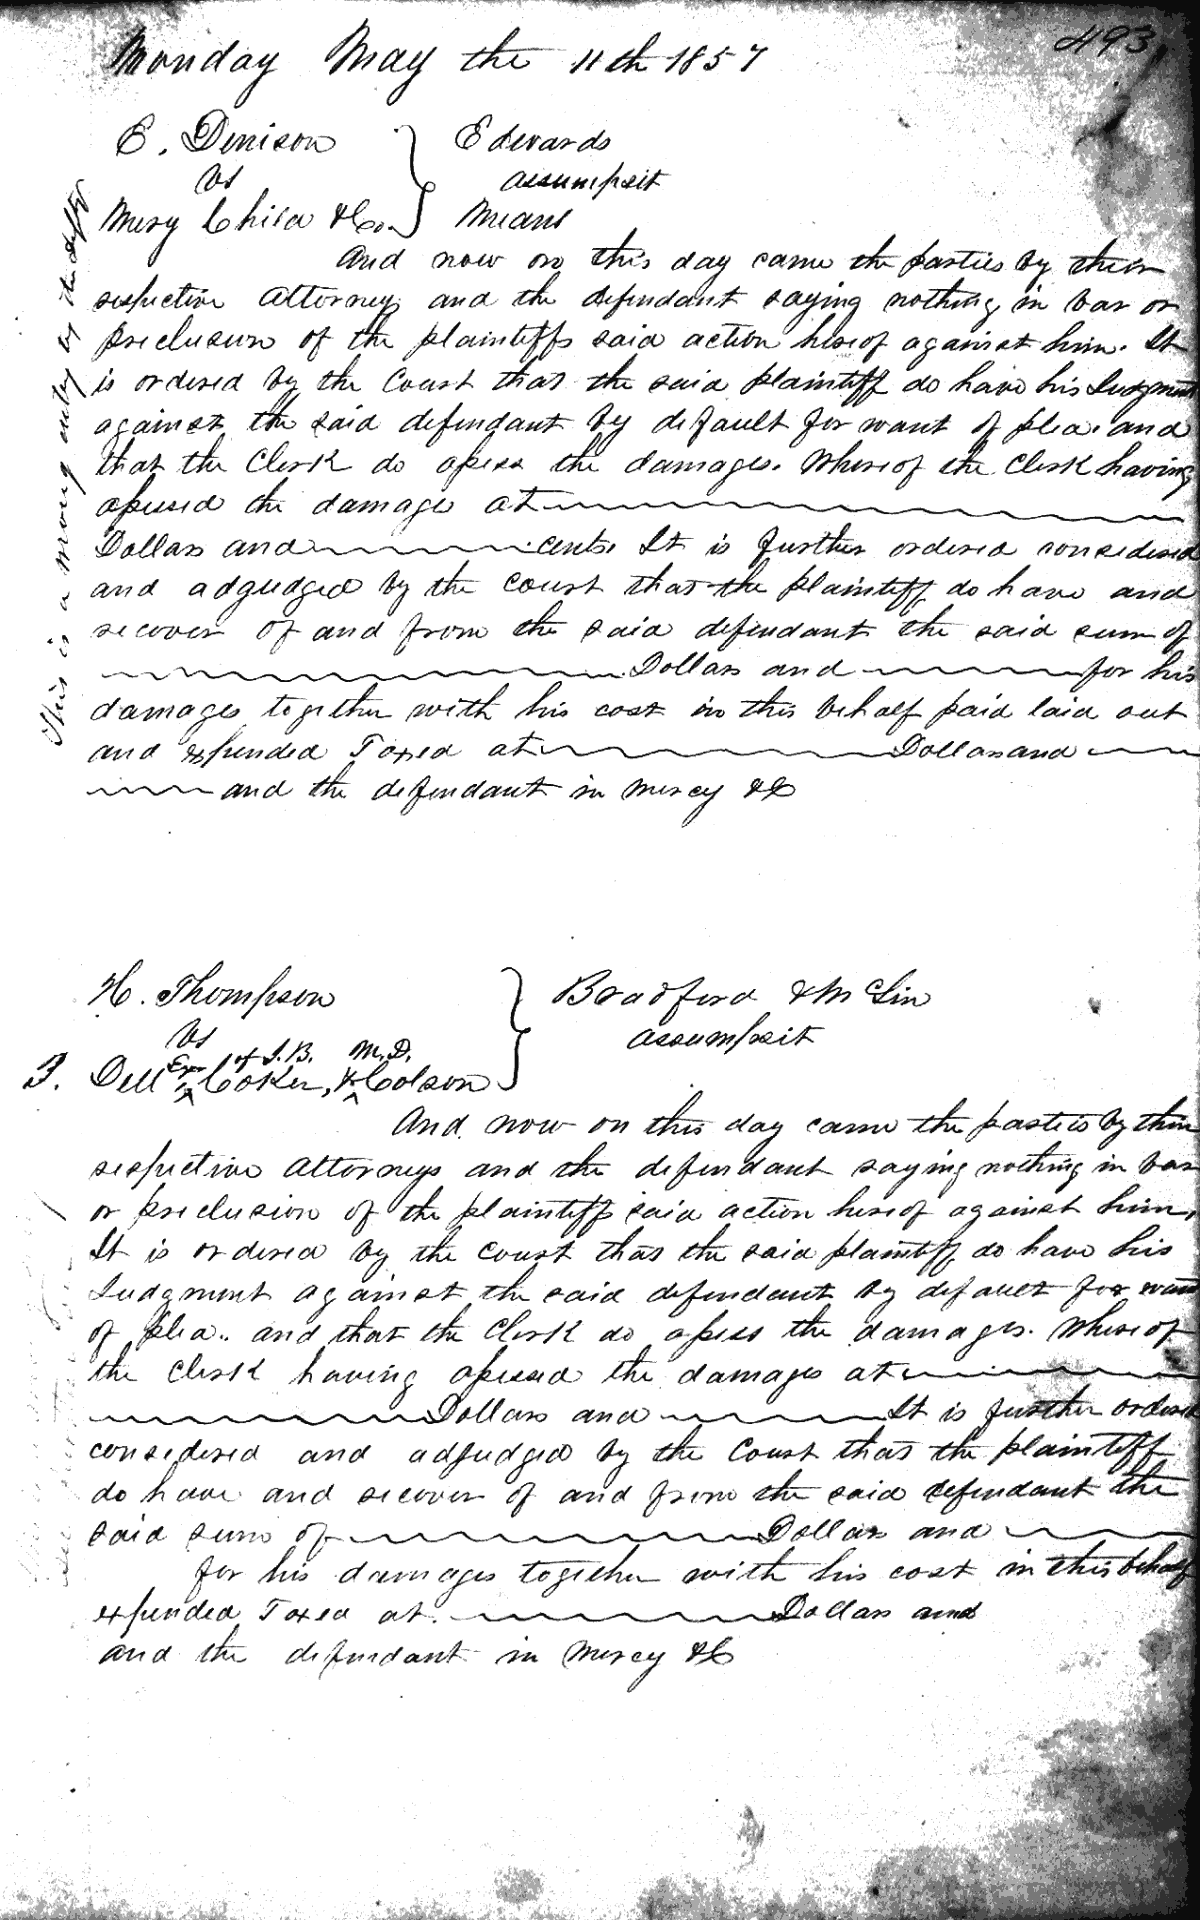 493,
Monday May the 11th 1857
E. Denison } Edwards
vs assumpsit
Mery Child & Co. Means
And now on this day came the parties by their
respective Attorneys and the defendant saying nothing in bar or
preclusion of the plaintiffs said action hereof against him. It
is ordered by the Court that the said plaintiff do have his Judgment
against the said defendant by default for want of plea. and
that the Clerk do apess the damages. Whereof the Clerk having
apessed the damage at
Dollars and cents. It is further ordered considered
and adgudged by the court that the plaintiff do have and
recover of and from the said defendant the said sum of
Dollars and for his
damages together with his cost in this behalf paid laid out
and expended Taxed at Dollars and
and the defendant in mercy &C
This is a wrong entry by the
H. Thompson } Bradford & McLin
vs assumpsit
3. Dell Exr of J. B. Coker, & M. D. Colson
And now on this day came the parties by their
respective Attorneys and the defendant saying nothing in bar
or preclusion of the plaintiffs said action hereof against him,
It is ordered by the Court that the said plaintiff do have his
Judgment against the said defendant by default for want
of plea.. and that the Clerk do apess the damages. Whereof
the Clerk having apessed the damages at
Dollars and It is further ordered
considered and adjudged by the Court that the plaintiff
do have and recover of and from the said defendant the
said sum of Dollars and
for his damages together with his cost in this behalf
expended Taxed at. Dollars and
and the defendant in mercy &C